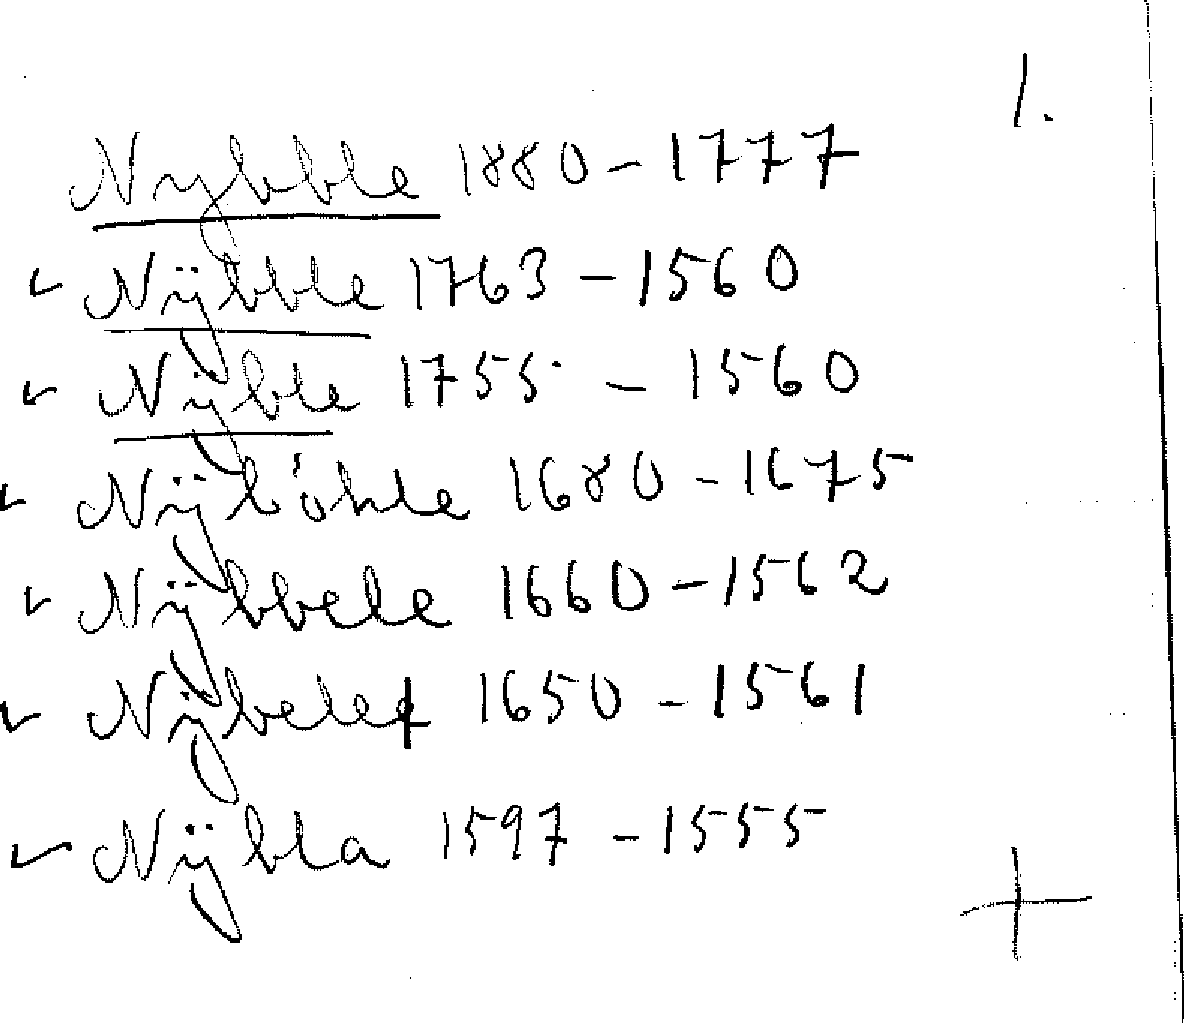 1.
Nybble 1880-1777
Nÿbble 1763-1560
Nÿble 1755-1560
Nÿböhle 1680-1675
Nÿbbele 1660-1562
Nÿbele 1650-1561
Nÿbla 1597-1555